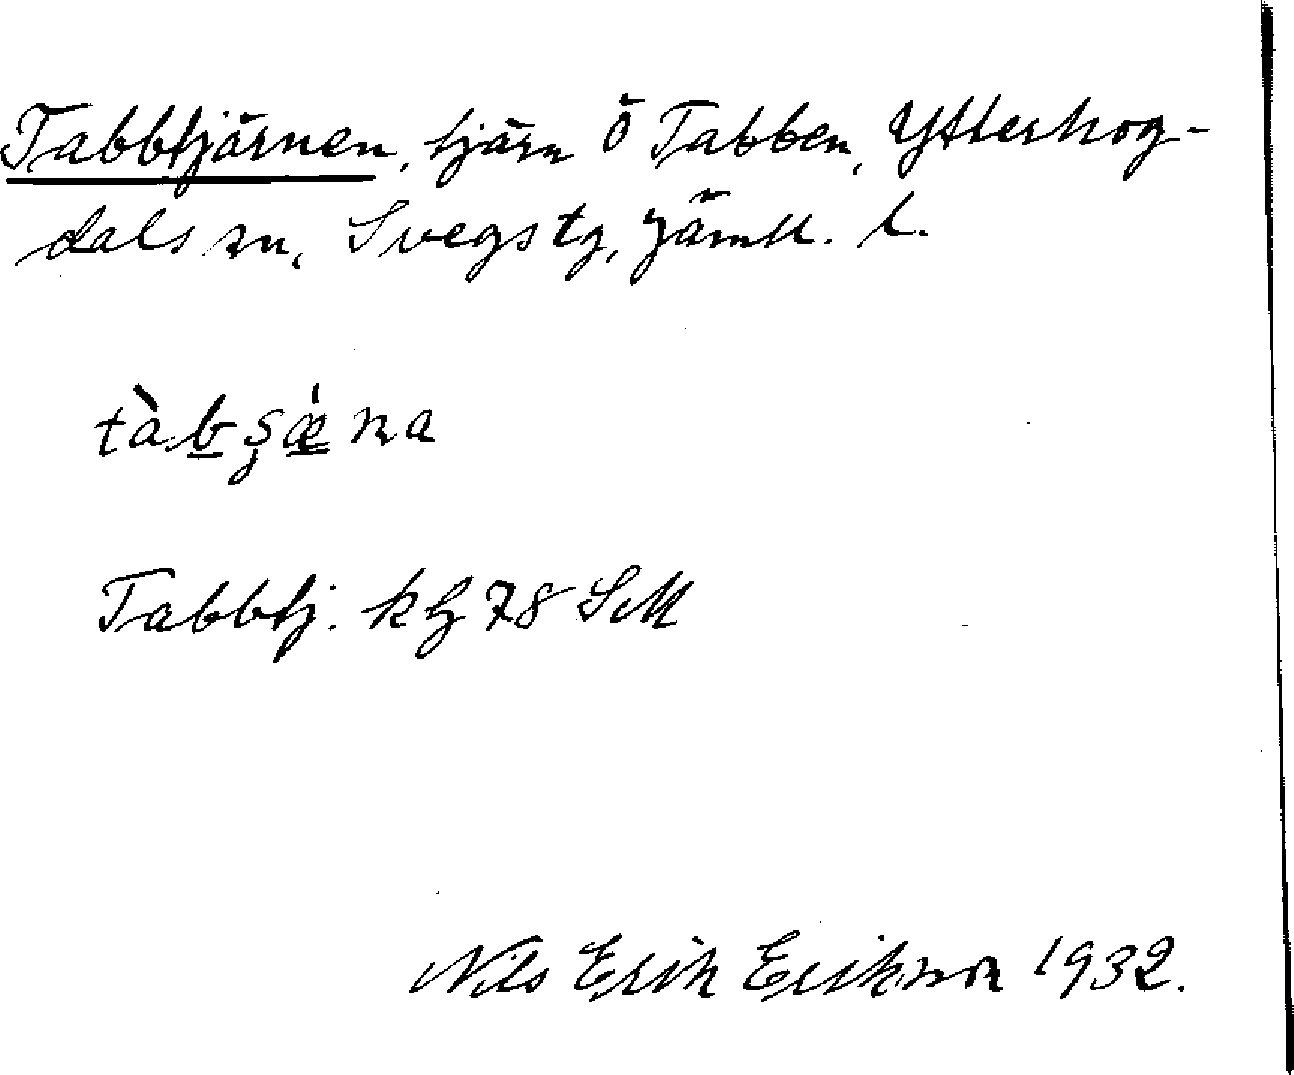 Tabbtjärnen, tjärn Ö Tabben, Ytterhog-
dals sn, Svegs tg, Jämtl. l.
tàbʂǽna
Tabbtj. kf 78 SM
Nils Erik Erikson 1932.